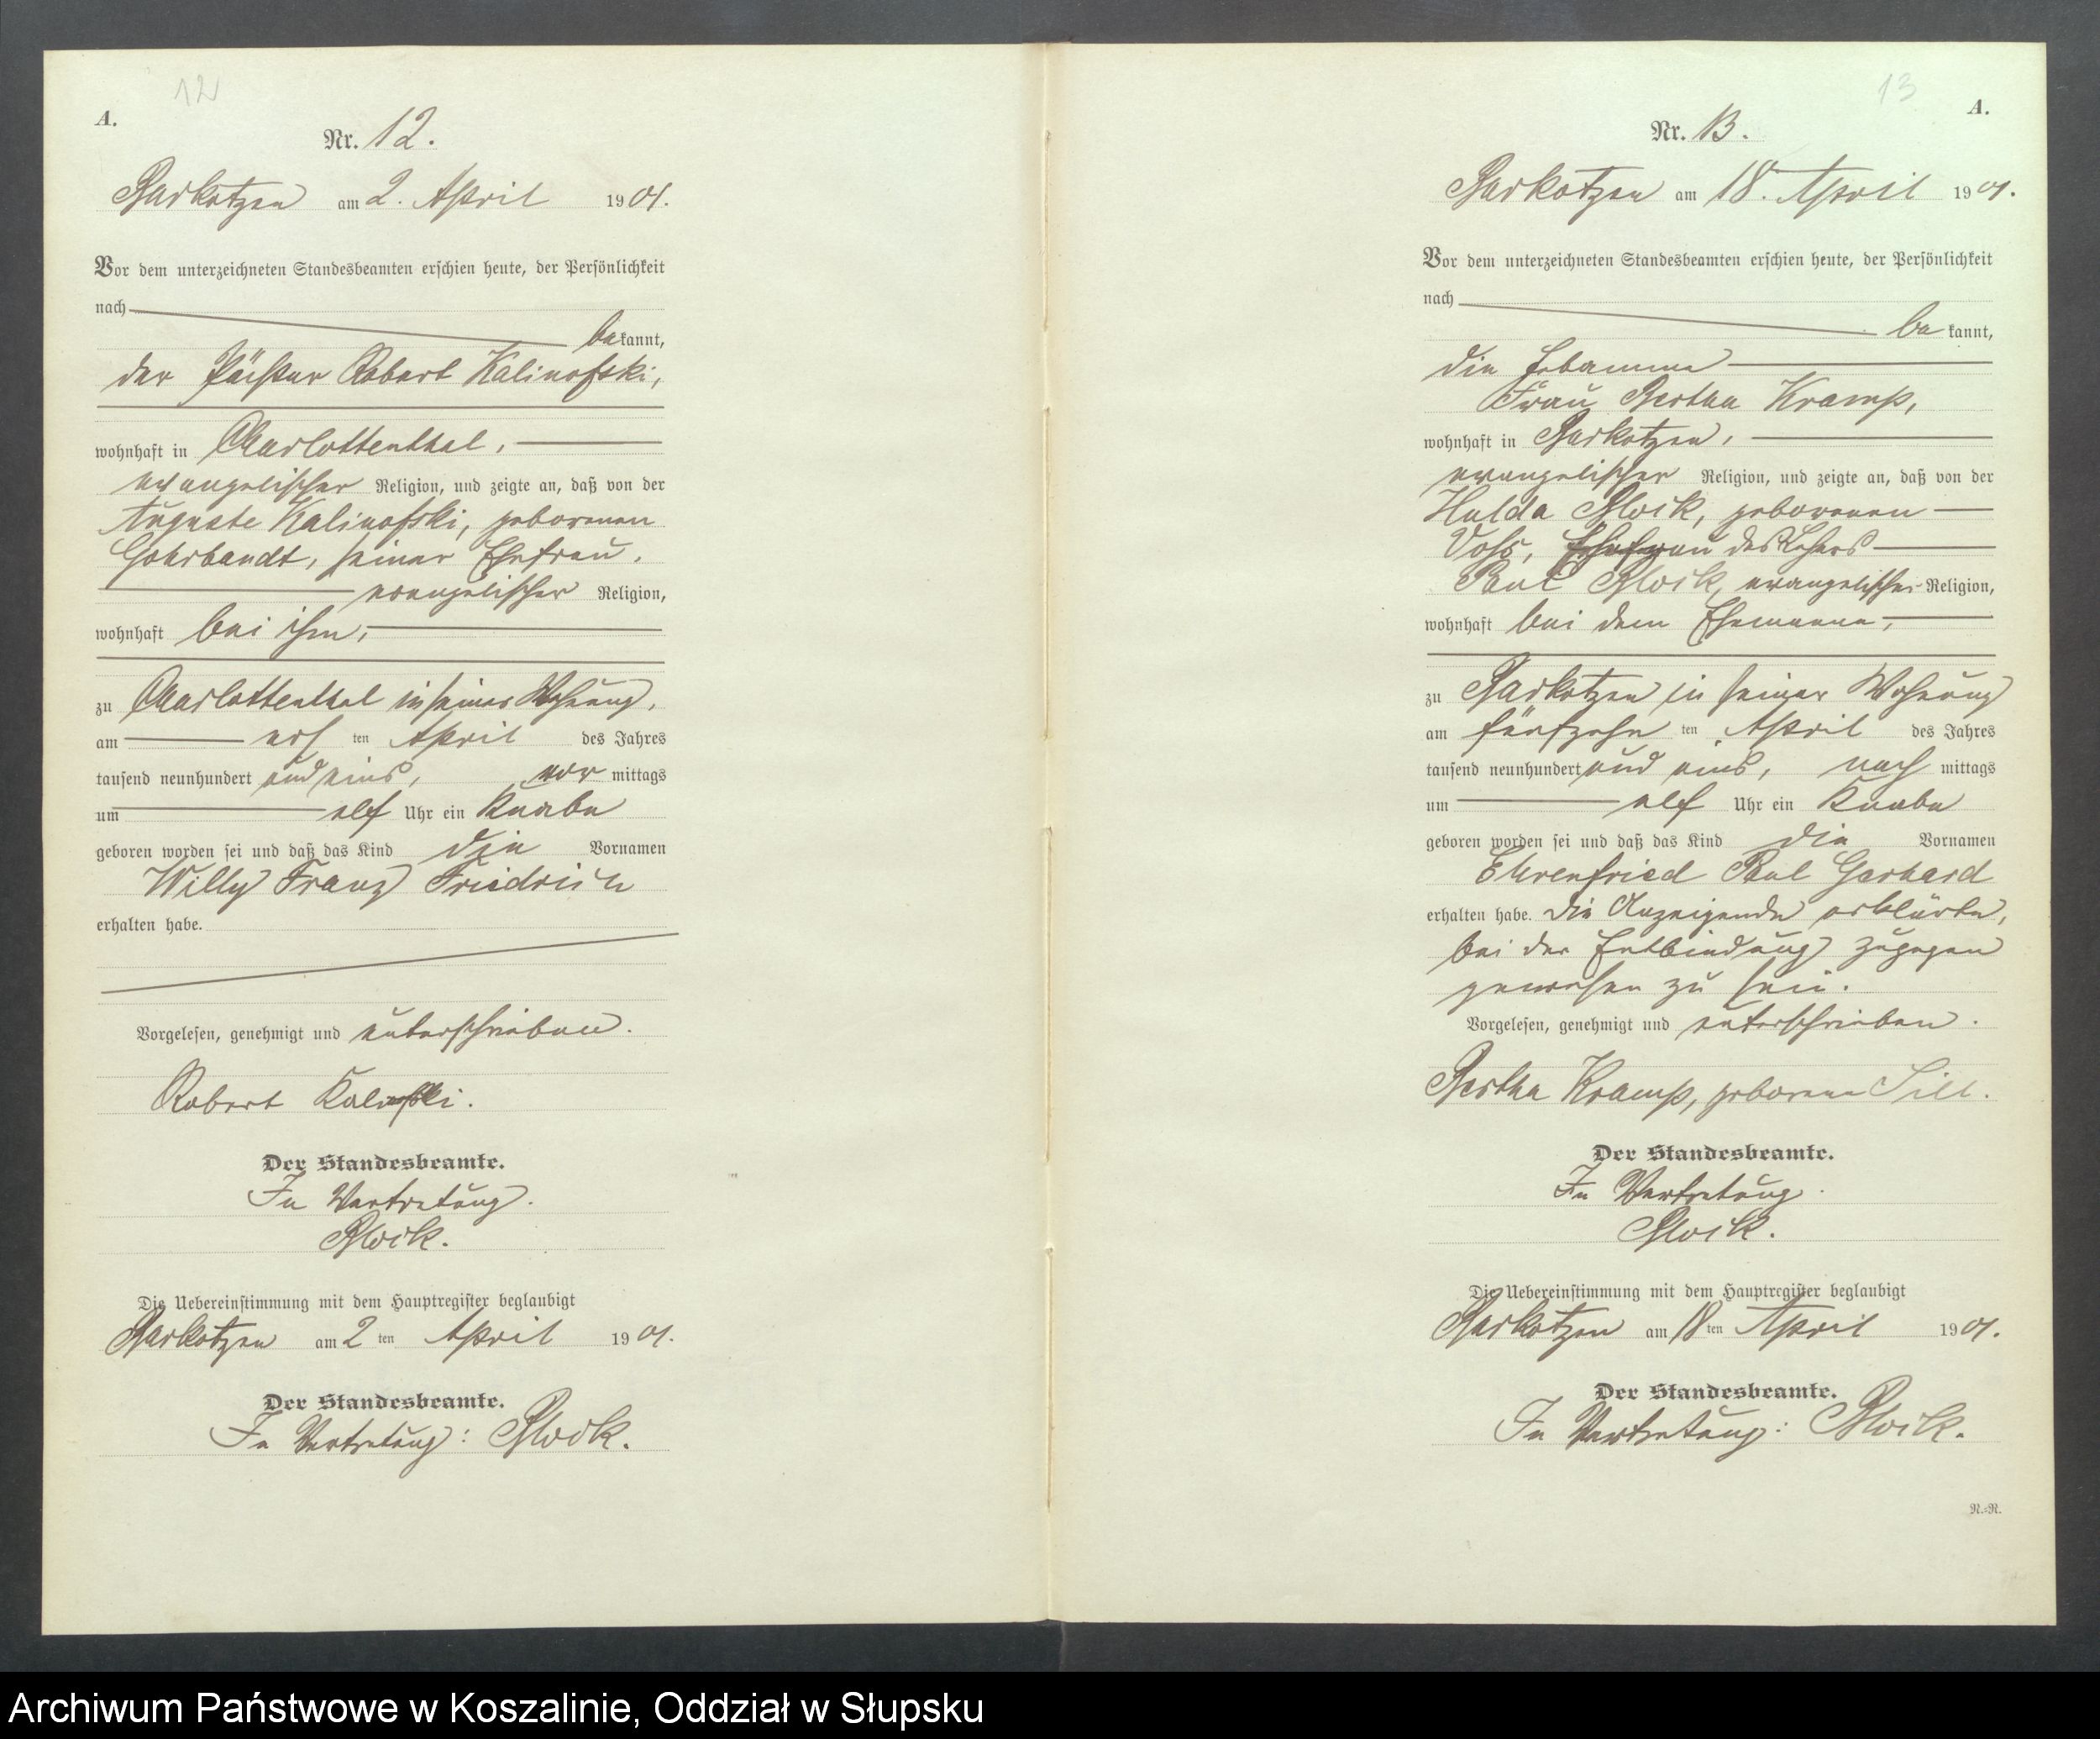 12
A.
Nr. 12.
Barkotzen am 2. April 1901.
Vor dem unterzeichneten Standesbeamten erschien heute, der Persönlichkeit
nach
bekannt,
der Pächter Robert Kalinofski,
wohnhaft in Charlottenthal,
evangelischer Religion, und zeigte an, daß von der
Auguste Kalinofski, geborenen
Gohrbandt, seiner Ehefrau,
evangelischer Religion,
wohnhaft bei ihm,
zu Charlottenthal in seiner Wohnung,
am ersten April des Jahres
tausend neunhundert und eins, vormittags
um elf Uhr ein Knabe
geboren worden sei und daß das Kind die Vornamen
Willy Franz Friedrich
erhalten habe.
Vorgelesen, genehmigt und unterschrieben.
Robert
Der Standesbeamte.
In Vertretung.
Block.
Die Uebereinstimmung mit dem Hauptregister beglaubigt
Barkotzen am 2ten April 1901.
Der Standesbeamte.
In Vertretung: Block.
13
A.
Nr. 13.
Barkotzen am 18. April 1901.
Vor dem unterzeichneten Standesbeamten erschien heute, der Persönlichkeit
nach
bekannt,
die Hebamme
Frau Bertha Kramp,
wohnhaft in Barkotzen,
evangelischer Religion, und zeigte an, daß von der
Hulda Block, geborenen
Voß, Ehefrau des Lehrers
Paul Block, evangelischer Religion,
wohnhaft bei dem Ehemanne,
zu Barkotzen in seiner Wohnung
am fünfzehnten April des Jahres
tausend neunhundert und eins, nachmittags
um elf Uhr ein Knabe
geboren worden sei und daß das Kind die Vornamen
Ehrenfried Paul Gerhard
erhalten habe. Die Anzeigende erklärte,
bei der Entbindung zugegen
gewesen zu sein.
Vorgelesen, genehmigt und unterschrieben.
Bertha Kramp, geborene
Der Standesbeamte.
In Vertretung.
Block.
Die Uebereinstimmung mit dem Hauptregister beglaubigt
Barkotzen am 18ten April 1901.
Der Standesbeamte.
In Vertretung: Block.
N.=R.
Archiwum Państwowe w Koszalinie, Oddział w Słupsku